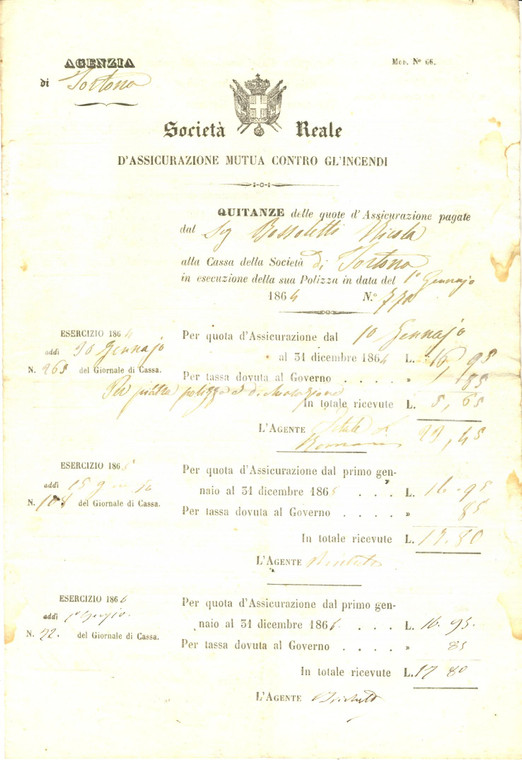 AGENZIA
di Tortona
Mod. N° 66.
Società Reale
D'ASSICURAZIONE MUTUA CONTRO GL'INCENDI
QUITANZE delle quote d'Assicurazione pagate
dal Sig Bossoletti Nicola
alla Cassa della Società di Tortona
in esecuzione della sua Polizza in data del 1° Gennajo
1864 N.°
ESERCIZIO 1864
addì Gennajo
N. 265 del Giornale di Cassa.
Per quota d'Assicurazione dal 1° Gennajo
al 31 dicembre 1864 L. 16, 95
Per tassa dovuta al Governo . . . . » 85
Per polizza
In totale ricevute L. 5, 65
L'AGENTE
, 45
ESERCIZIO 186
addì 15
N. 104 del Giornale di Cassa.
Per quota d'Assicurazione dal primo gen-
naio al 31 dicembre 186 . . . L. 16.95
Per tassa dovuta al Governo . . . . » 85
In totale ricevute L. 17.80
L'AGENTE
ESERCIZIO 1866
addì
N. 22. del Giornale di Cassa.
Per quota d'Assicurazione dal primo gen-
naio al 31 dicembre 1866 . . . L. 16.95.
Per tassa dovuta al Governo . . . . » 85
In totale ricevute L. 17 80
L'AGENTE